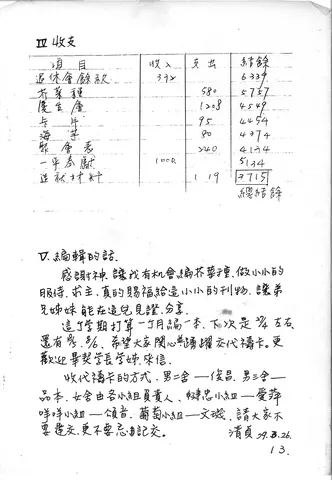 Ⅳ 收支
項目 收入 支出 結餘
退休會餘款 392 6337
芥菜種 580 5757
慶生會 1208 4549
卡片 95 4454
海芋 80 4374
聚會表 240 4134
一年奉獻 1000 5134
119 3715
總結餘
Ⅴ. 編輯的話.
感謝神,讓我有機會編芥菜種,做小小的
服侍.求主,真的賜福給這小小的刊物,讓弟
兄姊妹能在這兒見證、分享.
這學期打算一個月編一本,下次是 左右
還有 5/6. 希望大家關心並踴躍交代禱卡.更
歡迎畢契學長學姊來信.
收代禱卡的方式.男二舍—俊昌.男三舍—
品本.女舍由各小組負責人. 小組—愛萍
咩咩小組—頌音.葡萄小組—文璣.請大家不
要遲交,更不要忘記交. 清貞 79.3.26.
13.